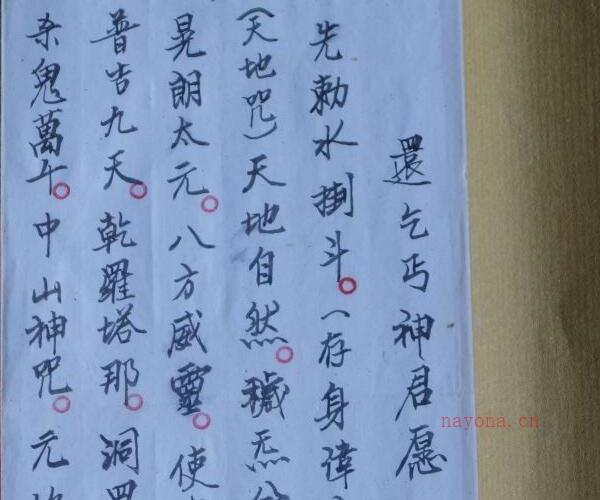 還乞丐神君愿
先勅水掛斗。(存身諱
(天地咒)天地自然。穢炁
晃朗太元。八方威靈。使
普告九天。乾羅塔那。洞
杀鬼萬千。中山神咒。元
nayona.cn